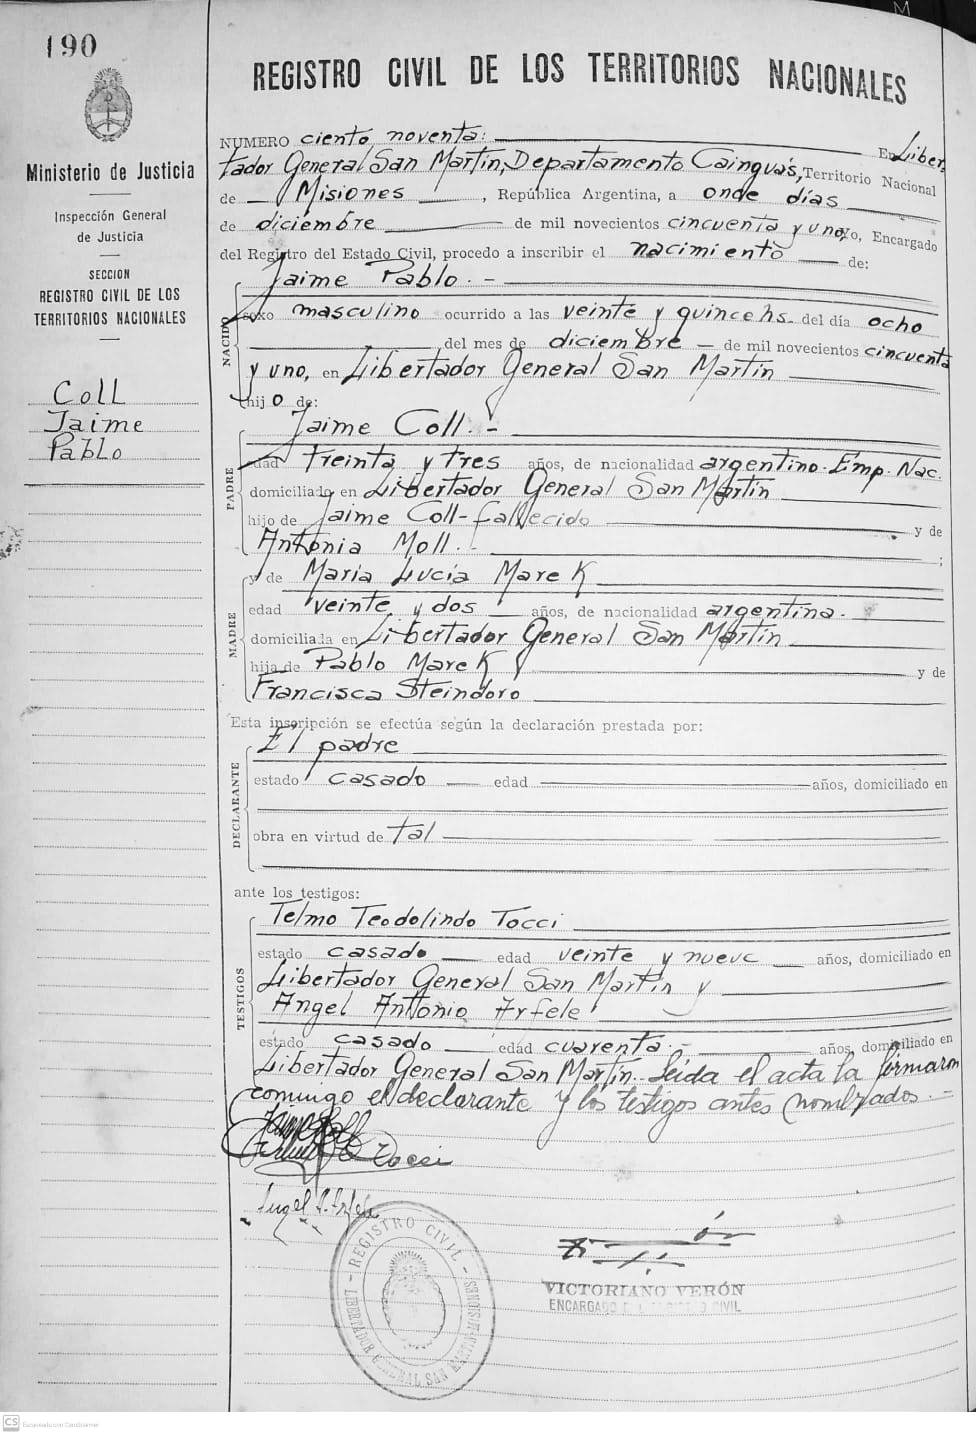 190
REGISTRO CIVIL DE LOS TERRITORIOS NACIONALES
Ministerio de Justicia
Inspección General
de Justicia
SECCION
REGISTRO CIVIL DE LOS
TERRITORIOS NACIONALES
Coll
Jaime
Pablo
NUMERO ciento noventa: En Liber
tador General San Martin, Departamento Cainguás, Territorio Nacional
de Misiones, República Argentina, a once días
de diciembre de mil novecientos cincuenta y uno, yo, Encargado
del Registro del Estado Civil, procedo a inscribir el nacimiento de:
NACIDO
Jaime Pablo. -
sexo masculino ocurrido a las veinte y quince hs. del día ocho
del mes de diciembre - de mil novecientos cincuenta
y uno, en Libertador General San Martin
hijo de:
PADRE
Jaime Coll. -
edad treinta y tres años, de nacionalidad argentino. Emp. Nac.
domiciliado en Libertador General San Martin
hijo de Jaime Coll - fallecido y de
Antonia Moll. - ;
MADRE
y de Maria Lucia Marek
edad veinte y dos años, de nacionalidad argentina.
domiciliada en Libertador General San Martin
hija de Pablo Marek y de
Francisca Steindoro
Esta inscripción se efectúa según la declaración prestada por:
DECLARANTE
El padre
estado casado edad años, domiciliado en
obra en virtud de tal
ante los testigos:
TESTIGOS
Telmo Teodolindo Tocci
estado casado edad veinte y nueve años, domiciliado en
Libertador General San Martin y
Angel Antonio Arfele
estado casado edad cuarenta. - años, domiciliado en
Libertador General San Martin. Leida el acta la firmaron
conmigo el declarante y los testigos antes nombrados. -
Jaime Coll
Tocci
Angel A. Arfele
REGISTRO CIVIL
LIBERTADOR GENERAL SAN MARTIN MISIONES
VICTORIANO VERÓN
ENCARGADO DEL REGISTRO CIVIL
CS Escaneado con CamScanner